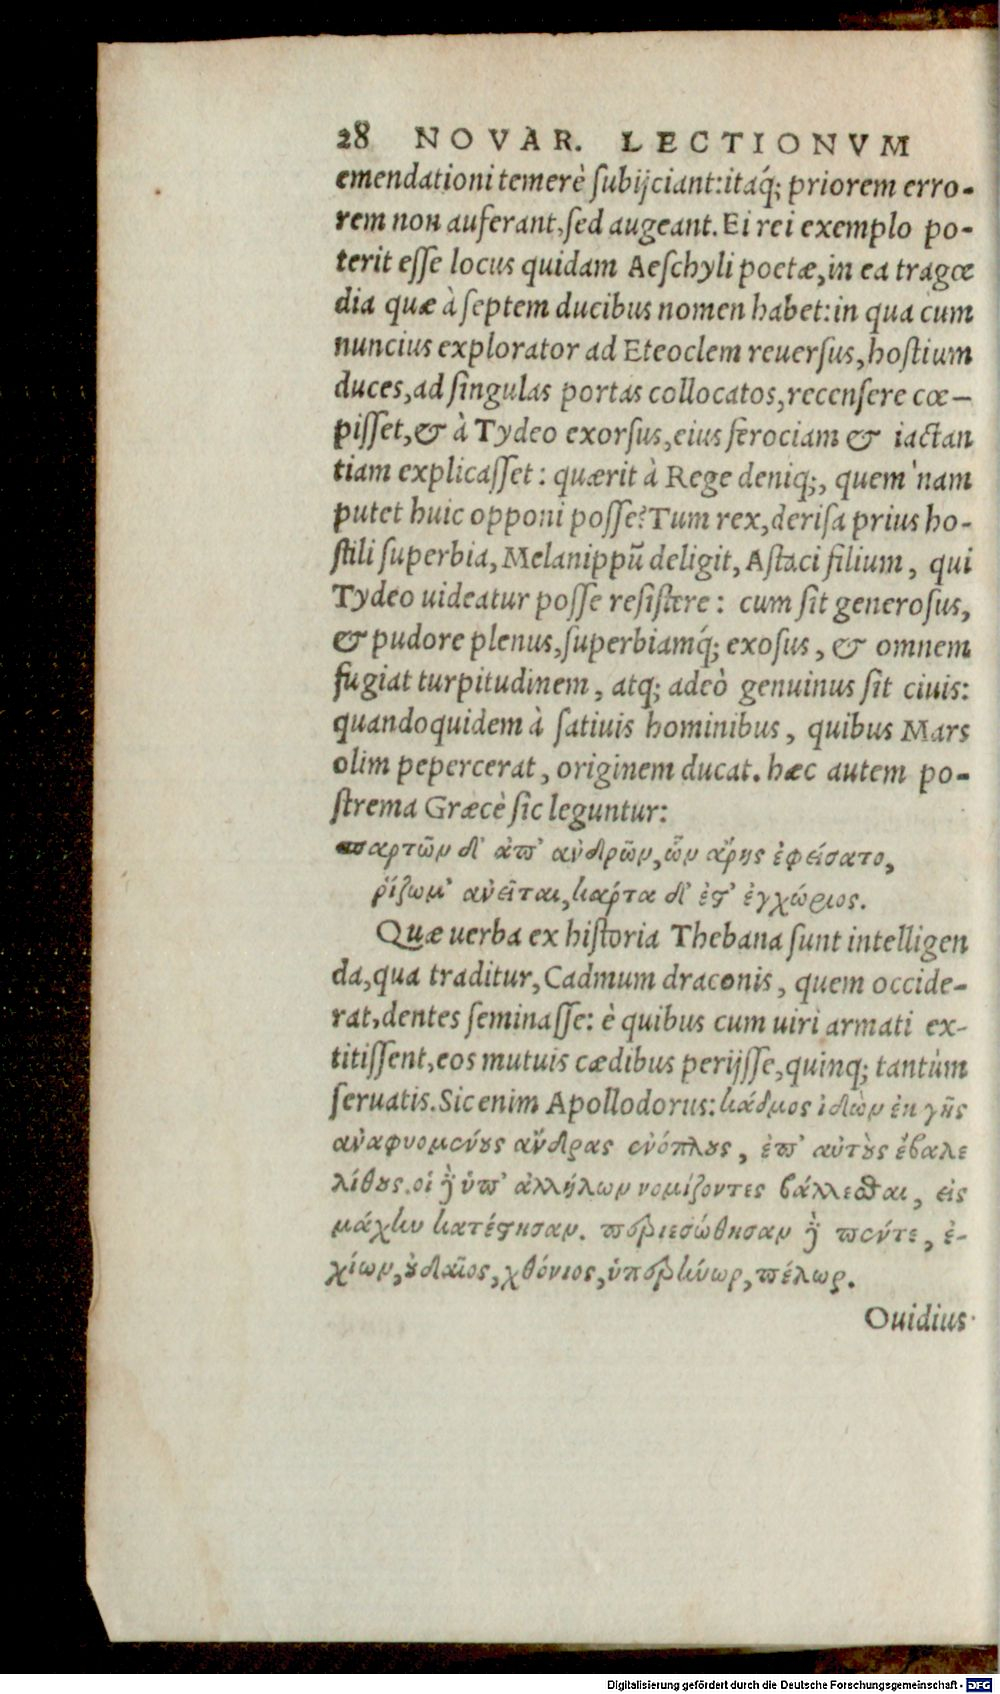 28 NOVAR. LECTIONVM
emendationi temerè ſubijciant: itaq́; priorem erro-
rem non auferant, ſed augeant. Ei rei exemplo po-
terit eſſe locus quidam Aeſchyli poetæ, in ea tragœ
dia quæ à ſeptem ducibus nomen habet: in qua cum
nuncius explorator ad Eteoclem reuerſus, hoſtium
duces, ad ſingulas portas collocatos, recenſere cœ-
piſſet, & à Tydeo exorſus, eius ferociam & iactan
tiam explicaſſet: quærit à Rege deniq;, quem'nam
putet huic opponi poſſe? Tum rex, deriſa prius ho-
ſtili ſuperbia, Melanippũ deligit, Aſtaci filium, qui
Tydeo uideatur poſſe reſiſtere: cum ſit generoſus,
& pudore plenus, ſuperbiamq́; exoſus, & omnem
fugiat turpitudinem, atq; adeò genuinus ſit ciuis:
quandoquidem à ſatiuis hominibus, quibus Mars
olim pepercerat, originem ducat. hæc autem po-
ſtrema Græcè ſic leguntur:
σπαρτῶν δ' ἀπ' ἀνδρῶν, ὧν ἄρης ἐφείσατο,
ῥίζωμ' ἀνεῖται, κάρτα δ' ἐστ' ἐγχώριος.
Quæ uerba ex hiſtoria Thebana ſunt intelligen
da, qua traditur, Cadmum draconis, quem occide-
rat, dentes ſeminaſſe: è quibus cum uiri armati ex-
titiſſent, eos mutuis cædibus perijſſe, quinq; tantùm
ſeruatis. Sic enim Apollodorus: κάδμος ἰδὼν ἐκ γῆς
ἀναφυομένους ἄνδρας ἐνόπλους, ἐπ' αὐτοὺς ἔβαλε
λίθους. οἱ δὲ ὑπ' ἀλλήλων νομίζοντες βάλλεσθαι, εἰς
μάχην κατέστησαν. περιεσώθησαν δὲ πέντε, ἐ-
χίων, οὐδαῖος, χθόνιος, ὑπερήνωρ, πέλωρ.
Ouidius
Digitalisierung gefördert durch die Deutsche Forschungsgemeinschaft - DFG